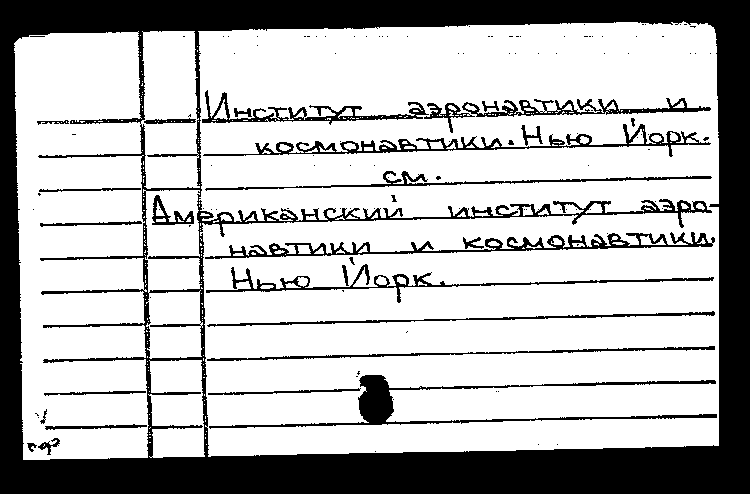 Институт аэронавтики и
космонавтики. Нью Йорк.
см.
Американский институт аэро-
навтики и космонавтики.
Нью Йорк.